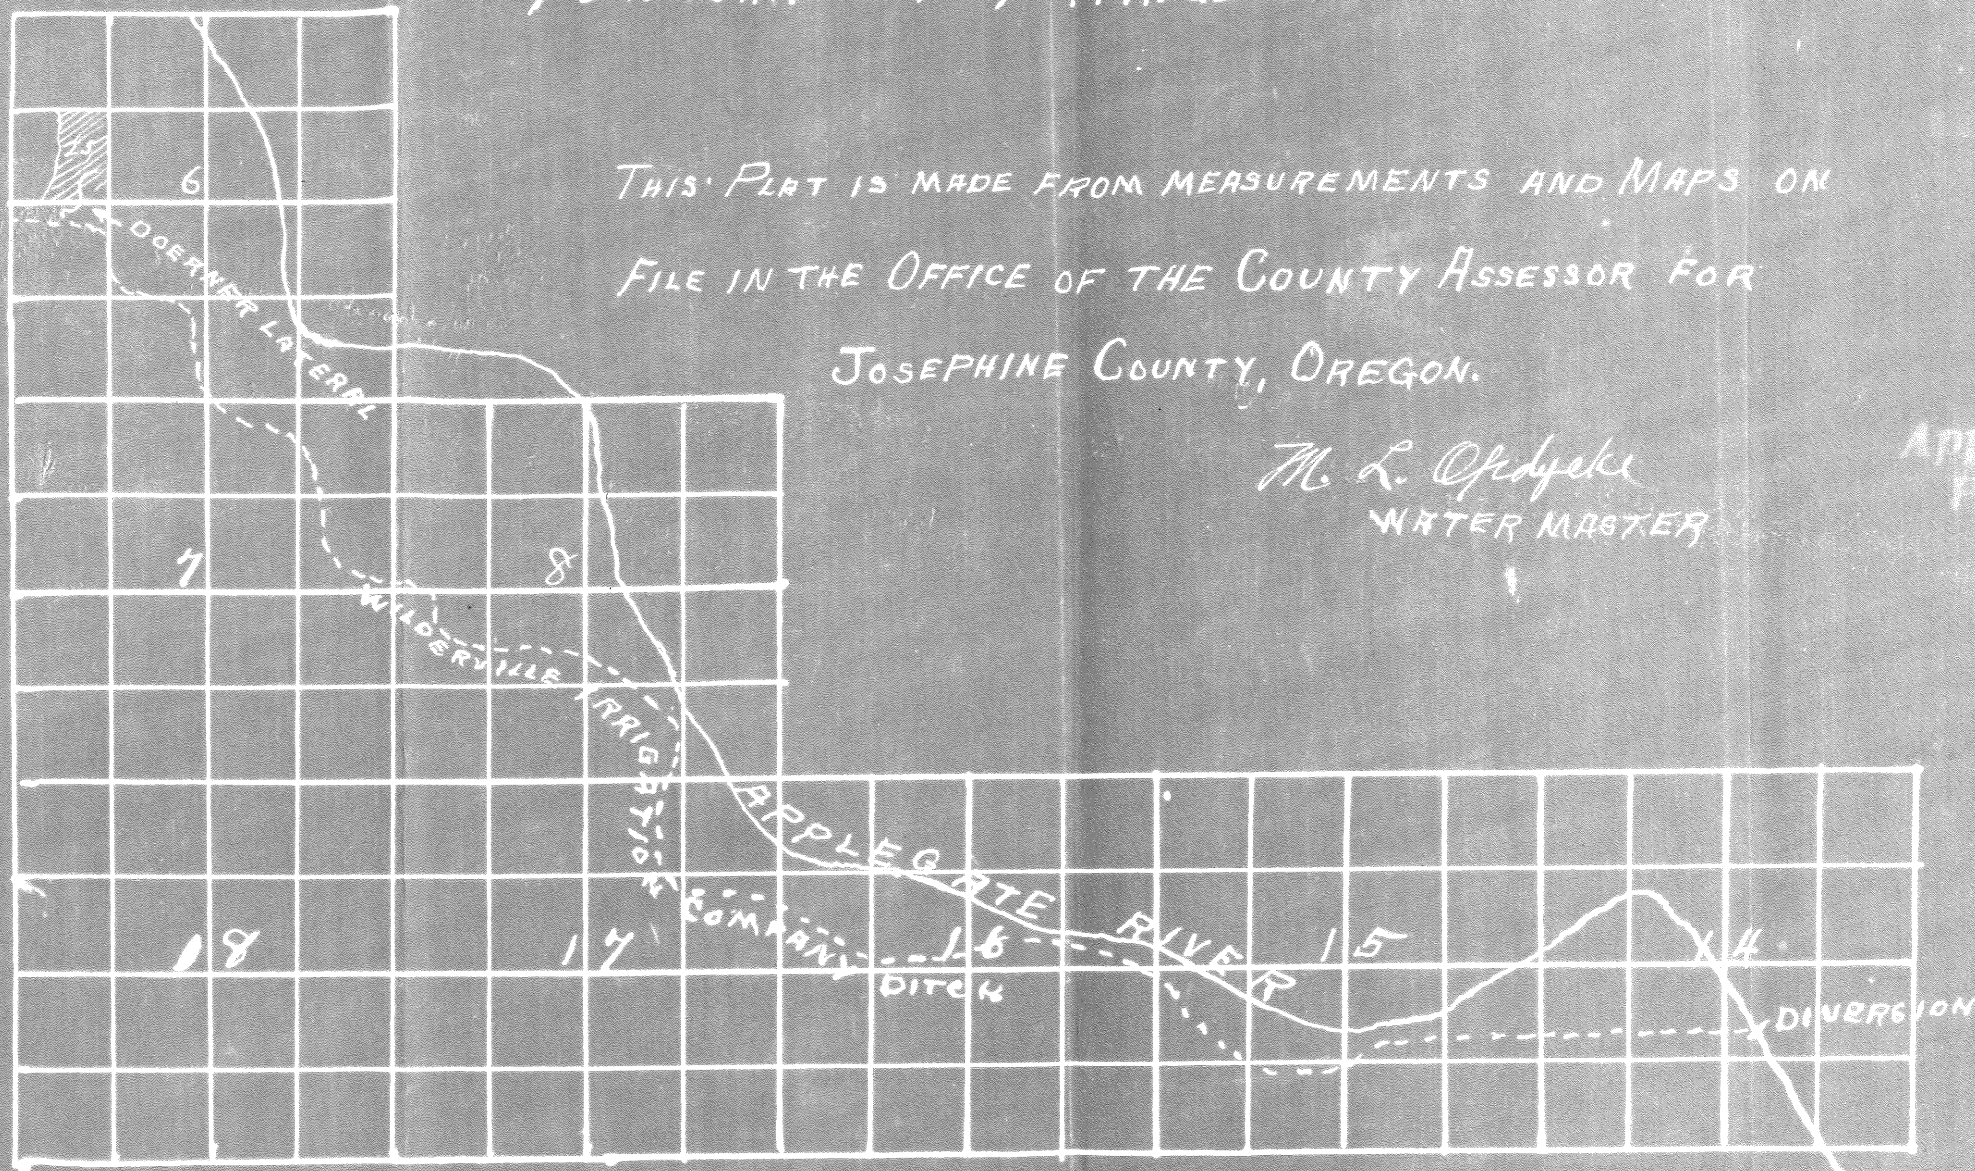 THIS PLAT IS MADE FROM MEASUREMENTS AND MAPS ON
FILE IN THE OFFICE OF THE COUNTY ASSESSOR FOR
JOSEPHINE COUNTY, OREGON.
M. L. Opdycke
WATER MASTER
25
6
DOERNER LATERAL
7
8
WILDERVILLE IRRIGATION COMPANY DITCH
APPLEGATE RIVER
18
17
16
15
14
DIVERSION